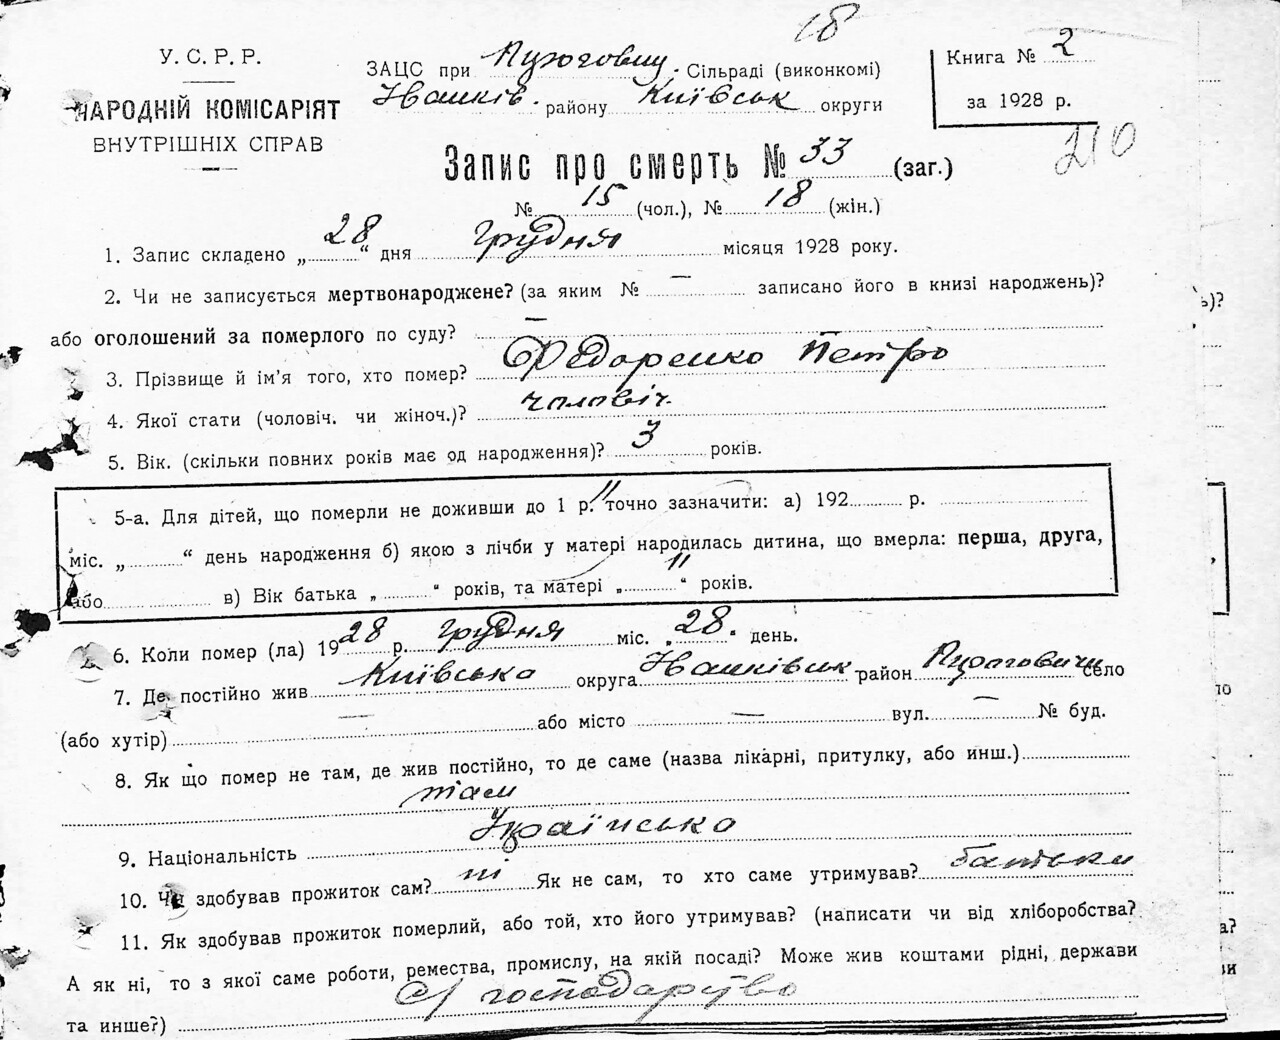 18
У. С. Р. Р.
НАРОДНІЙ КОМІСАРІЯТ
ВНУТРІШНІХ СПРАВ
ЗАЦС при Пухговиц. Сільраді (виконкомі)
Івашків. району Київськ округи
Книга № 2
за 1928 р.
210
Запис про смерть № 33 (заг.)
№ 15 (чол.), № 18 (жін.)
1. Запис складено „ 28 “ дня Грудня місяця 1928 року.
2. Чи не записується мертвонароджене? (за яким № — записано його в книзі народжень)?
або оголошений за померлого по суду? —
3. Прізвище й ім'я того, хто помер? Федоренко Петро
4. Якої стати (чоловіч. чи жіноч.)? чоловіч.
5. Вік. (скільки повних років має од народження)? 3 років.
5-а. Для дітей, що померли не доживши до 1 р. точно зазначити: а) 192 р.
міс. „ “ день народження б) якою з лічби у матері народилась дитина, що вмерла: перша, друга,
або в) Вік батька „ “ років, та матері „ “ років.
6. Коли помер (ла) 1928 р. Грудня міс. „ 28 “ день.
7. Де постійно жив Київська округа Івашківськ район село
(або хутір) — або місто — вул. — № буд.
8. Як що помер не там, де жив постійно, то де саме (назва лікарні, притулку, або инш.)
там
9. Національність Українсько
10. Чи здобував прожиток сам? ні Як не сам, то хто саме утримував? батьки
11. Як здобував прожиток померлий, або той, хто його утримував? (написати чи від хліборобства?
А як ні, то з якої саме роботи, ремества, промислу, на якій посаді? Може жив коштами рідні, держави
та инше?) С/господарство